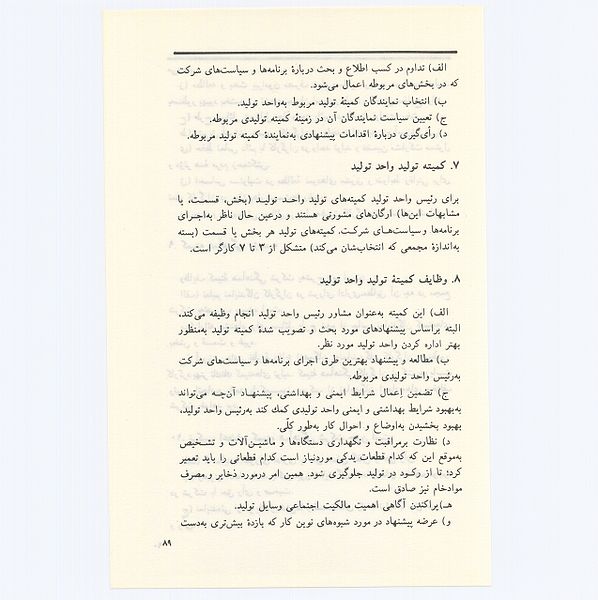 الف) تداوم در کسب اطلاع و بحث دربارهٔ برنامه‌ها و سیاست‌های شرکت
که در بخش‌های مربوطه اعمال می‌شود.
ب) انتخاب نمایندگان کمیتهٔ تولید مربوط به‌واحد تولید.
ج) تعیین سیاست نمایندگان آن در زمینهٔ کمیته تولیدی مربوطه.
د) رأی‌گیری دربارهٔ اقدامات پیشنهادی به‌نمایندهٔ کمیته تولید مربوطه.
۷. کمیته تولید واحد تولید
برای رئیس واحد تولید کمیته‌های تولید واحد تولید (بخش، قسمت، یا
مشابهات این‌ها) ارگان‌های مشورتی هستند و درعین حال ناظر به‌اجرای
برنامه‌ها و سیاست‌های شرکت. کمیته‌های تولید هر بخش یا قسمت (بسته
به‌اندازهٔ مجمعی که انتخاب‌شان می‌کند) متشکل از ۳ تا ۷ کارگر است.
۸. وظایف کمیتهٔ تولید واحد تولید
الف) این کمیته به‌عنوان مشاور رئیس واحد تولید انجام وظیفه می‌کند،
البته براساس پیشنهادهای مورد بحث و تصویب شدهٔ کمیته تولید به‌منظور
بهتر اداره کردن واحد تولید مورد نظر.
ب) مطالعه و پیشنهاد بهترین طرق اجرای برنامه‌ها و سیاست‌های شرکت
به‌رئیس واحد تولیدی مربوطه.
ج) تضمین اِعمال شرایط ایمنی و بهداشتی، پیشنهاد آن‌چه می‌تواند
به‌بهبود شرایط بهداشتی و ایمنی واحد تولیدی کمك کند به‌رئیس واحد تولید،
بهبود بخشیدن به‌اوضاع و احوال کار به‌طور کلّی.
د) نظارت برمراقبت و نگهداری دستگاه‌ها و ماشین‌آلات و تشخیص
به‌موقع این که کدام قطعات یدکی موردنیاز است کدام قطعاتی را باید تعمیر
کرد؛ تا از رکود در تولید جلوگیری شود. همین امر درمورد ذخایر و مصرف
موادخام نیز صادق است.
هـ) پراکندن آگاهی اهمیت مالکیت اجتماعی وسایل تولید.
و) عرضه پیشنهاد در مورد شیوه‌های نوین کار که بازدهٔ بیش‌تری به‌دست
۸۹